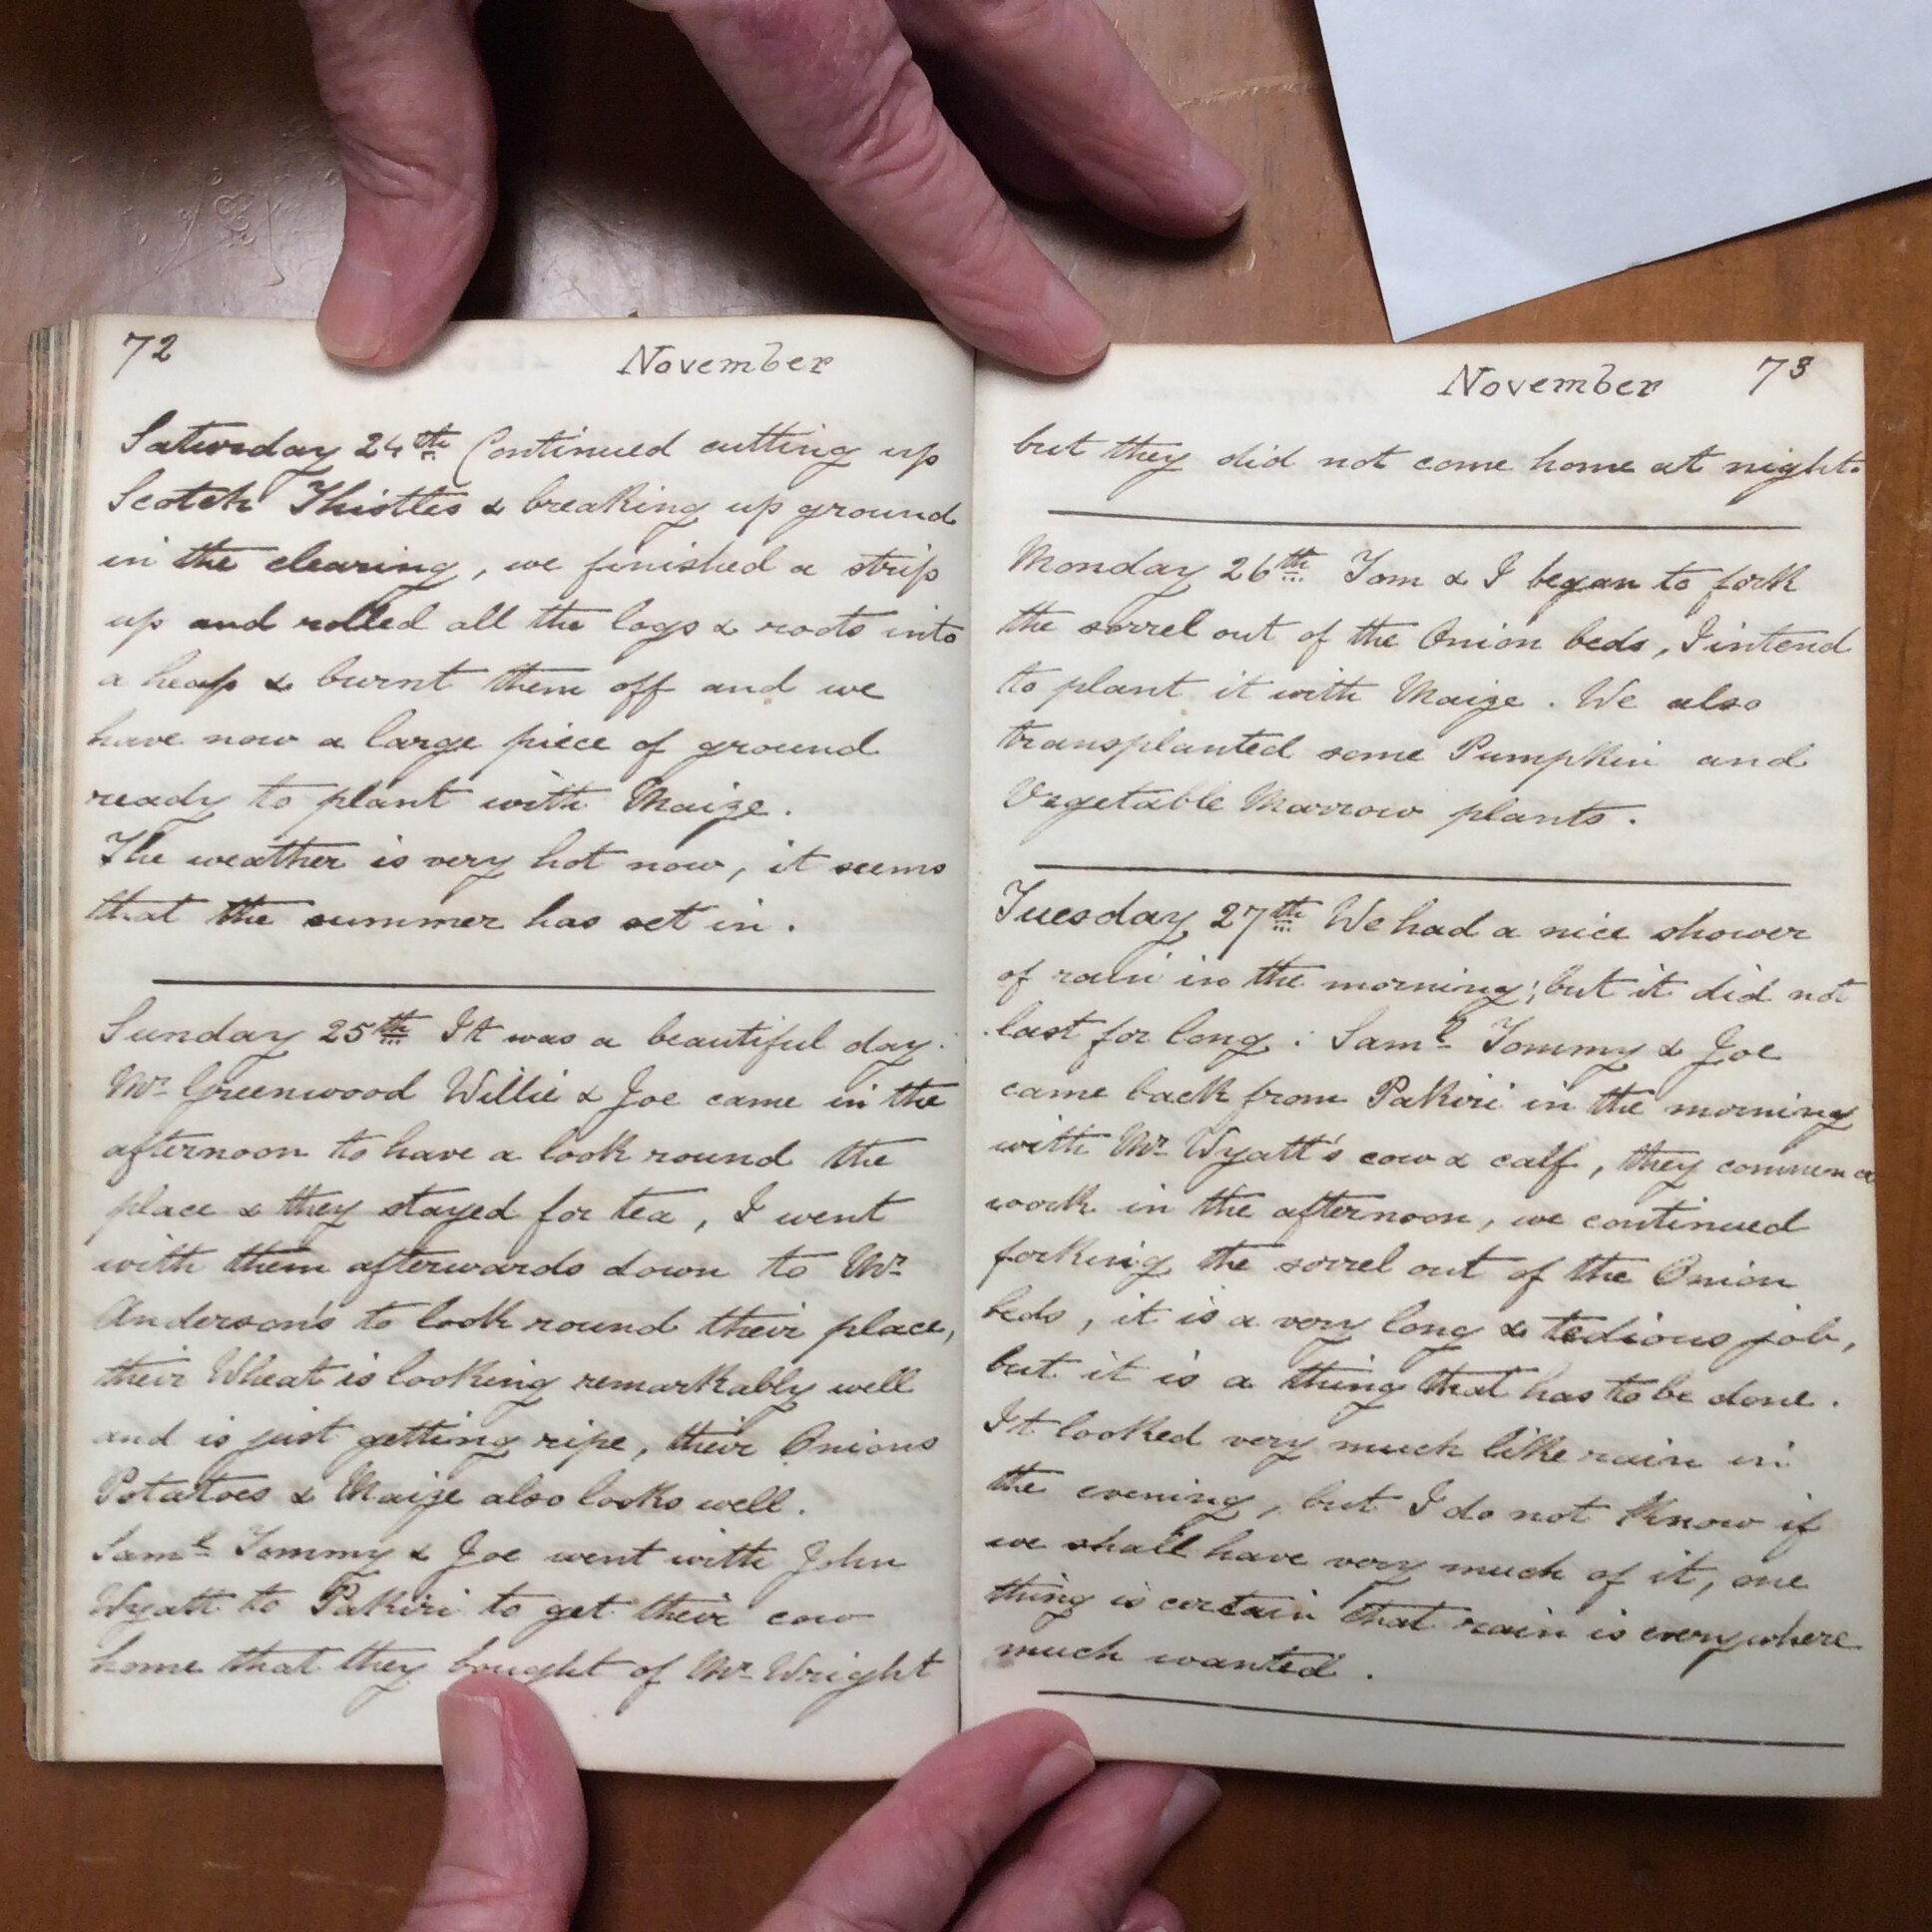 72
November
Saturday 24th Continued cutting up
Scotch Thistles & breaking up ground
in the clearing, we finished a strip
up and rolled all the logs & roots into
a heap & burnt them off and we
have now a large piece of ground
ready to plant with Maize.
The weather is very hot now, it seems
that the summer has set in.
Sunday 25th It was a beautiful day.
Mr Greenwood Willie & Joe came in the
afternoon to have a look round the
place & they stayed for tea, I went
with them afterwards down to Mr
Anderson's to look round their place,
their Wheat is looking remarkably well
and is just getting ripe, their Onions
Potatoes & Maize also looks well.
Saml Tommy & Joe went with John
Wyatt to Pakiri to get their cow
home that they bought of Mr Wright
November
73
but they did not come home at night.
Monday 26th Tom & I began to fork
the sorrel out of the Onion beds, I intend
to plant it with Maize. We also
transplanted some Pumpkin and
Vegetable Marrow plants.
Tuesday 27th We had a nice shower
of rain in the morning; but it did not
last for long. Saml Tommy & Joe
came back from Pakiri in the morning
with Mr Wyatt's cow & calf, they
work in the afternoon, we continued
forking the sorrel out of the Onion
beds, it is a very long & tedious job,
but it is a thing that has to be done.
It looked very much like rain in
the evening, but I do not know if
we shall have very much of it, one
thing is certain that rain is everywhere
much wanted.